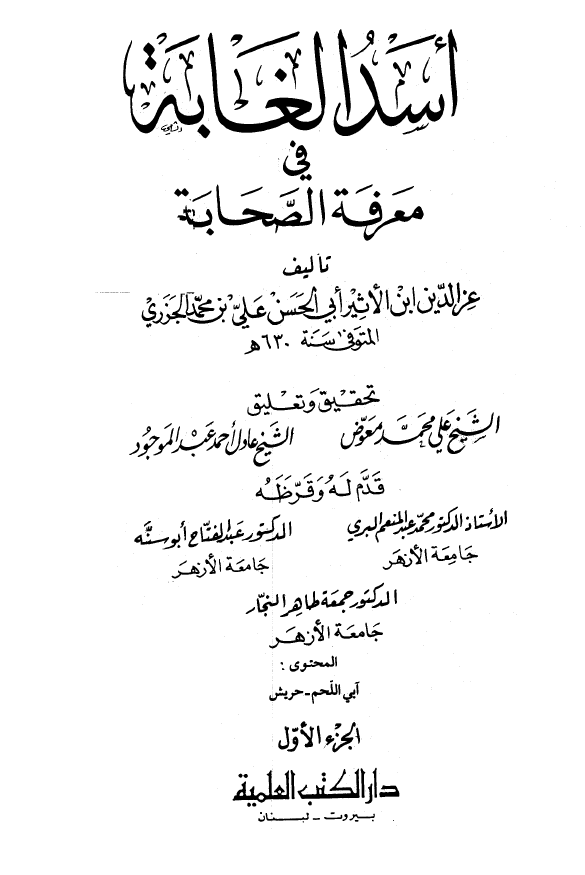 أسد الغابة
في
معرفة الصحابة
تأليف
عز الدين ابن الأثير أبي الحسن علي بن محمد الجزري
المتوفى سنة ٦٣٠ هـ
تحقيق وتعليق
الشيخ علي محمد معوض الشيخ عادل أحمد عبد الموجود
قدم له وقرظه
الأستاذ الدكتور محمد عبد المنعم البري الدكتور عبد الفتاح أبو سنه
جامعة الأزهر جامعة الأزهر
الدكتور جمعة طاهر النجار
جامعة الأزهر
المحتوى :
آبي اللحم - حريش
الجزء الأول
دار الكتب العلمية
بيروت - لبنان